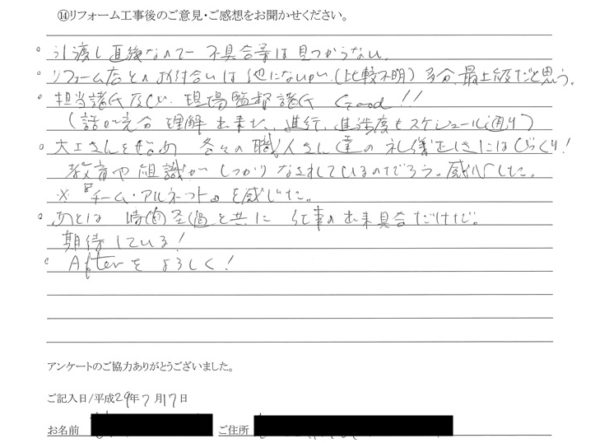 ⑭リフォーム工事後のご意見・ご感想をお聞かせください。
。引渡し直後なので不具合等は見つからない。
。リフォーム店とのお付合いは他にないが(比較不明)多分、最上級だと思う。
。担当諸氏及び、現場監督諸氏 Good!!
(話が完全理解出来た、進行、進渉度もスケジュール通り)
。大工さんを始め 各々の職人さん達の礼儀正しさにはびっくり!
教育や組識がしっかりなされているのだろう。感心した。
※『チーム・アルネット』を感じた。
。あとは 時間の経過と共に 仕事の出来具合だけだ。
期待している!
。Afterをよろしく!
アンケートのご協力ありがとうございました。
ご記入日/平成29年7月17日
お名前 ご住所